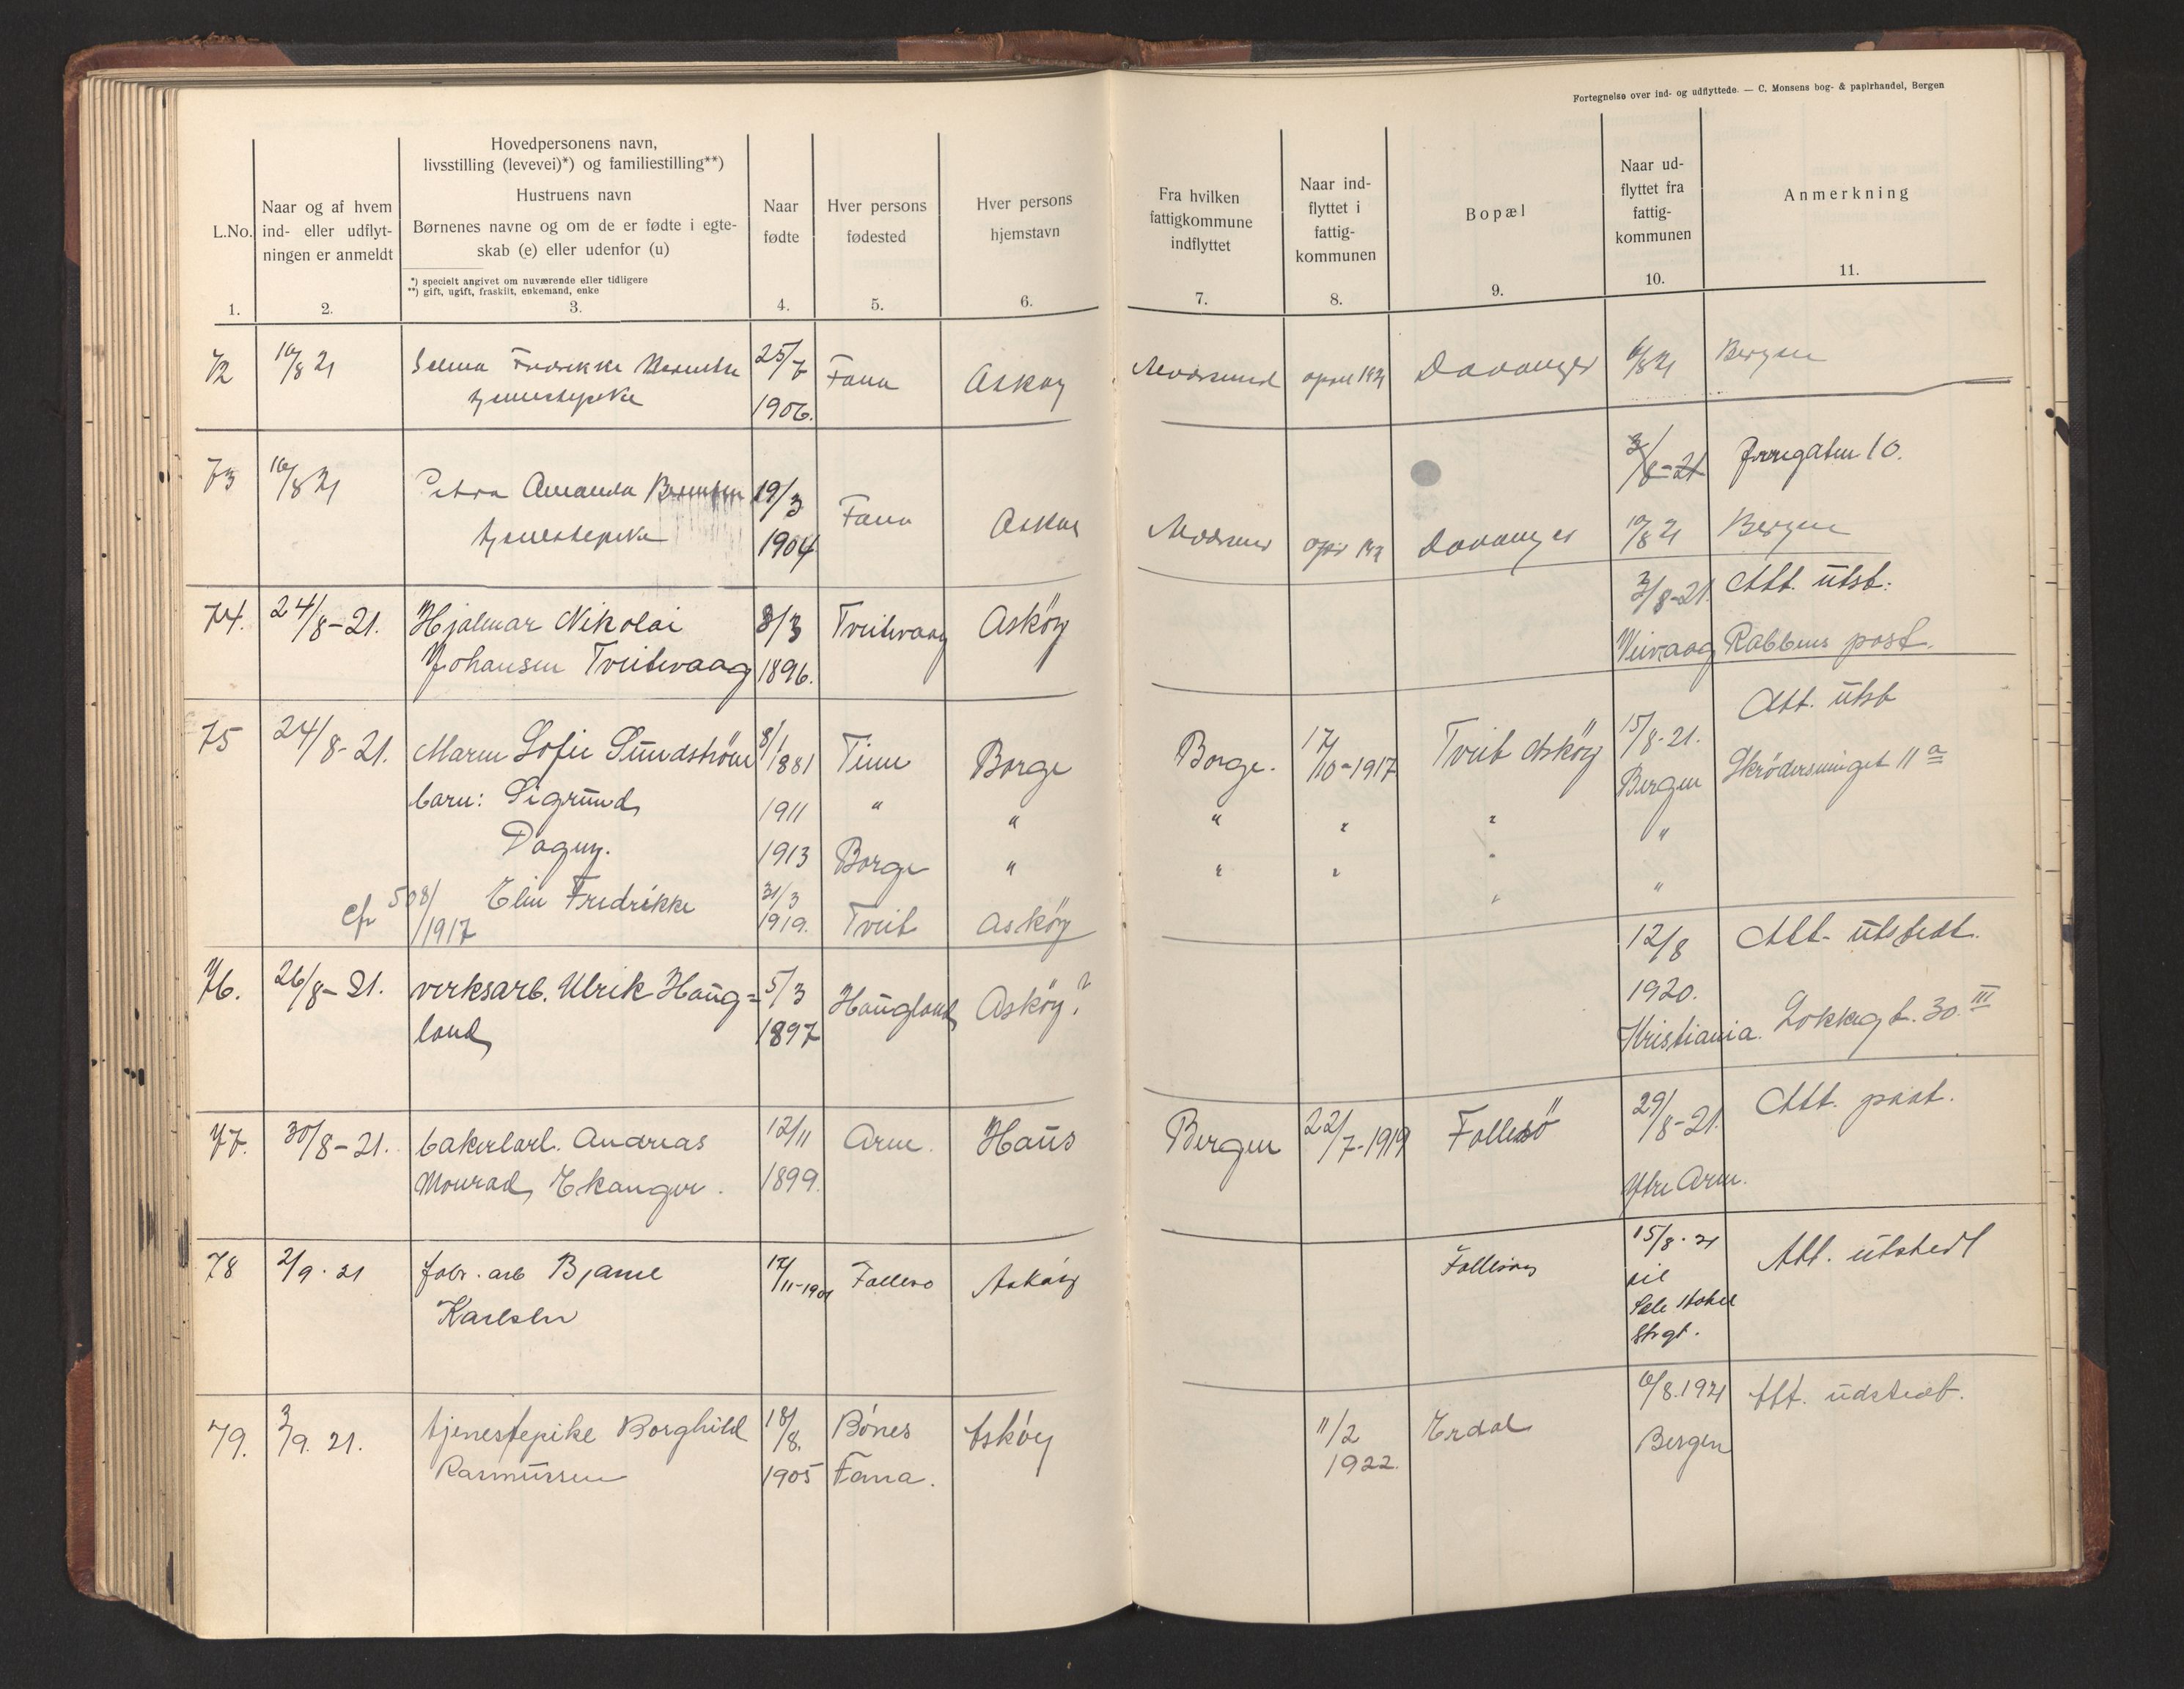 Fortegnelse over ind- og udflyttede. — C. Monsens bog- & papirhandel, Bergen
L.No.
1.
Naar og af hvem
ind- eller udflyt-
ningen er anmeldt
2.
Hovedpersonens navn,
livsstilling (levevei)*) og familiestilling**)
Hustruens navn
Børnenes navne og om de er fødte i egte-
skab (e) eller udenfor (u)
*) specielt angivet om nuværende eller tidligere
**) gift, ugift, fraskilt, enkemand, enke
3.
Naar
fødte
4.
Hver persons
fødested
5.
Hver persons
hjemstavn
6.
Fra hvilken
fattigkommune
indflyttet
7.
Naar ind-
flyttet i
fattig-
kommunen
8.
Bopæl
9.
Naar ud-
flyttet fra
fattig-
kommunen
10.
Anmerkning
11.
72 10/8 21 Selma Fredrikke 25/7 Fana Askøy april 1921 Davanger 6/8 21 Bergen
tjenestepike 1906.
73 10/8 21 Petra Amanda 19/3 Fana Askøy Davanger 3/8-21
tjenestepike 1904 10/8 21 Bergen
74. 24/8-21. Hjalmar Nikolai 8/3 Tveitevaag Askøy 3/8-21. Att. utst.
Johansen Tveitevaag 1896. Rabbens post.
75 24/8-21. Maren Sofie Sundstrøm 8/1 1881 Time Borge Borge. 17/10-1917 Tveit Askøy 15/8-21. Att. utst
Bergen 11 a
barn: Sigrund 1911 " " " " " "
Dagny. 1913 Borge " " " " "
Elin Fredrikke 31/3 1919. Tveit Askøy
cfr 508/1917
76. 26/8-21. verksarb. Ulrik Haug= 5/3 Haugland Askøy? 12/8 Att. utstedt.
land 1897 1920.
Kristiania. Lokkegt. 30. III
77. 30/8-21. Andreas 12/11 Arne. Haus Bergen 22/7-1919 Follesø 29/8-21. Att.
Monrad Ekanger. 1899. Ytre Arne.
78 2/9. 21 fabr. arb Bjarne Follesø Askøy Follesøy 15/8. 21 Att. utstedt
Karlsen til
79. 3/9. 21. tjenestepike Borghild 18/8. Bönes Askøy 11/2 Erdal 6/8. 1921 Att. udstedt.
Rasmussen 1905 Fana. 1922. Bergen